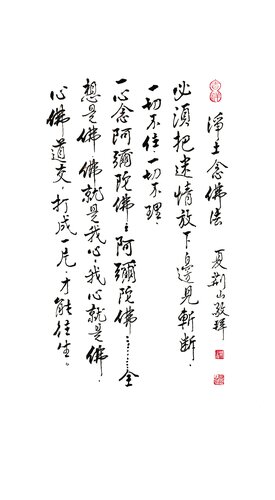 淨土念佛法
夏荊山敬拜
必須把迷情放下邊見斬斷．
一切不住．一切不理．
一心念阿彌陀佛．阿彌陀佛………全
想是佛．佛就是我心．我心就是佛．
心佛道交．打成一片．才能往生。